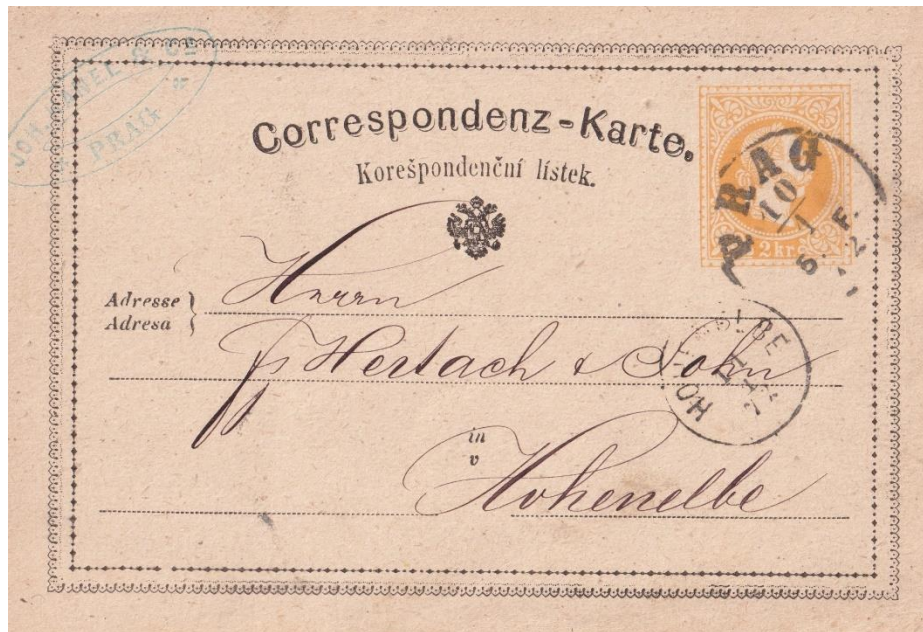 JOH. & Co
PRAG
Correspondenz-Karte.
Korešpondenční lístek.
2 kr
PRAG
10/1
Adresse
Adresa
Herrn
Hertach & Sohn
in
v
Hohenelbe
HOHENELBE
72